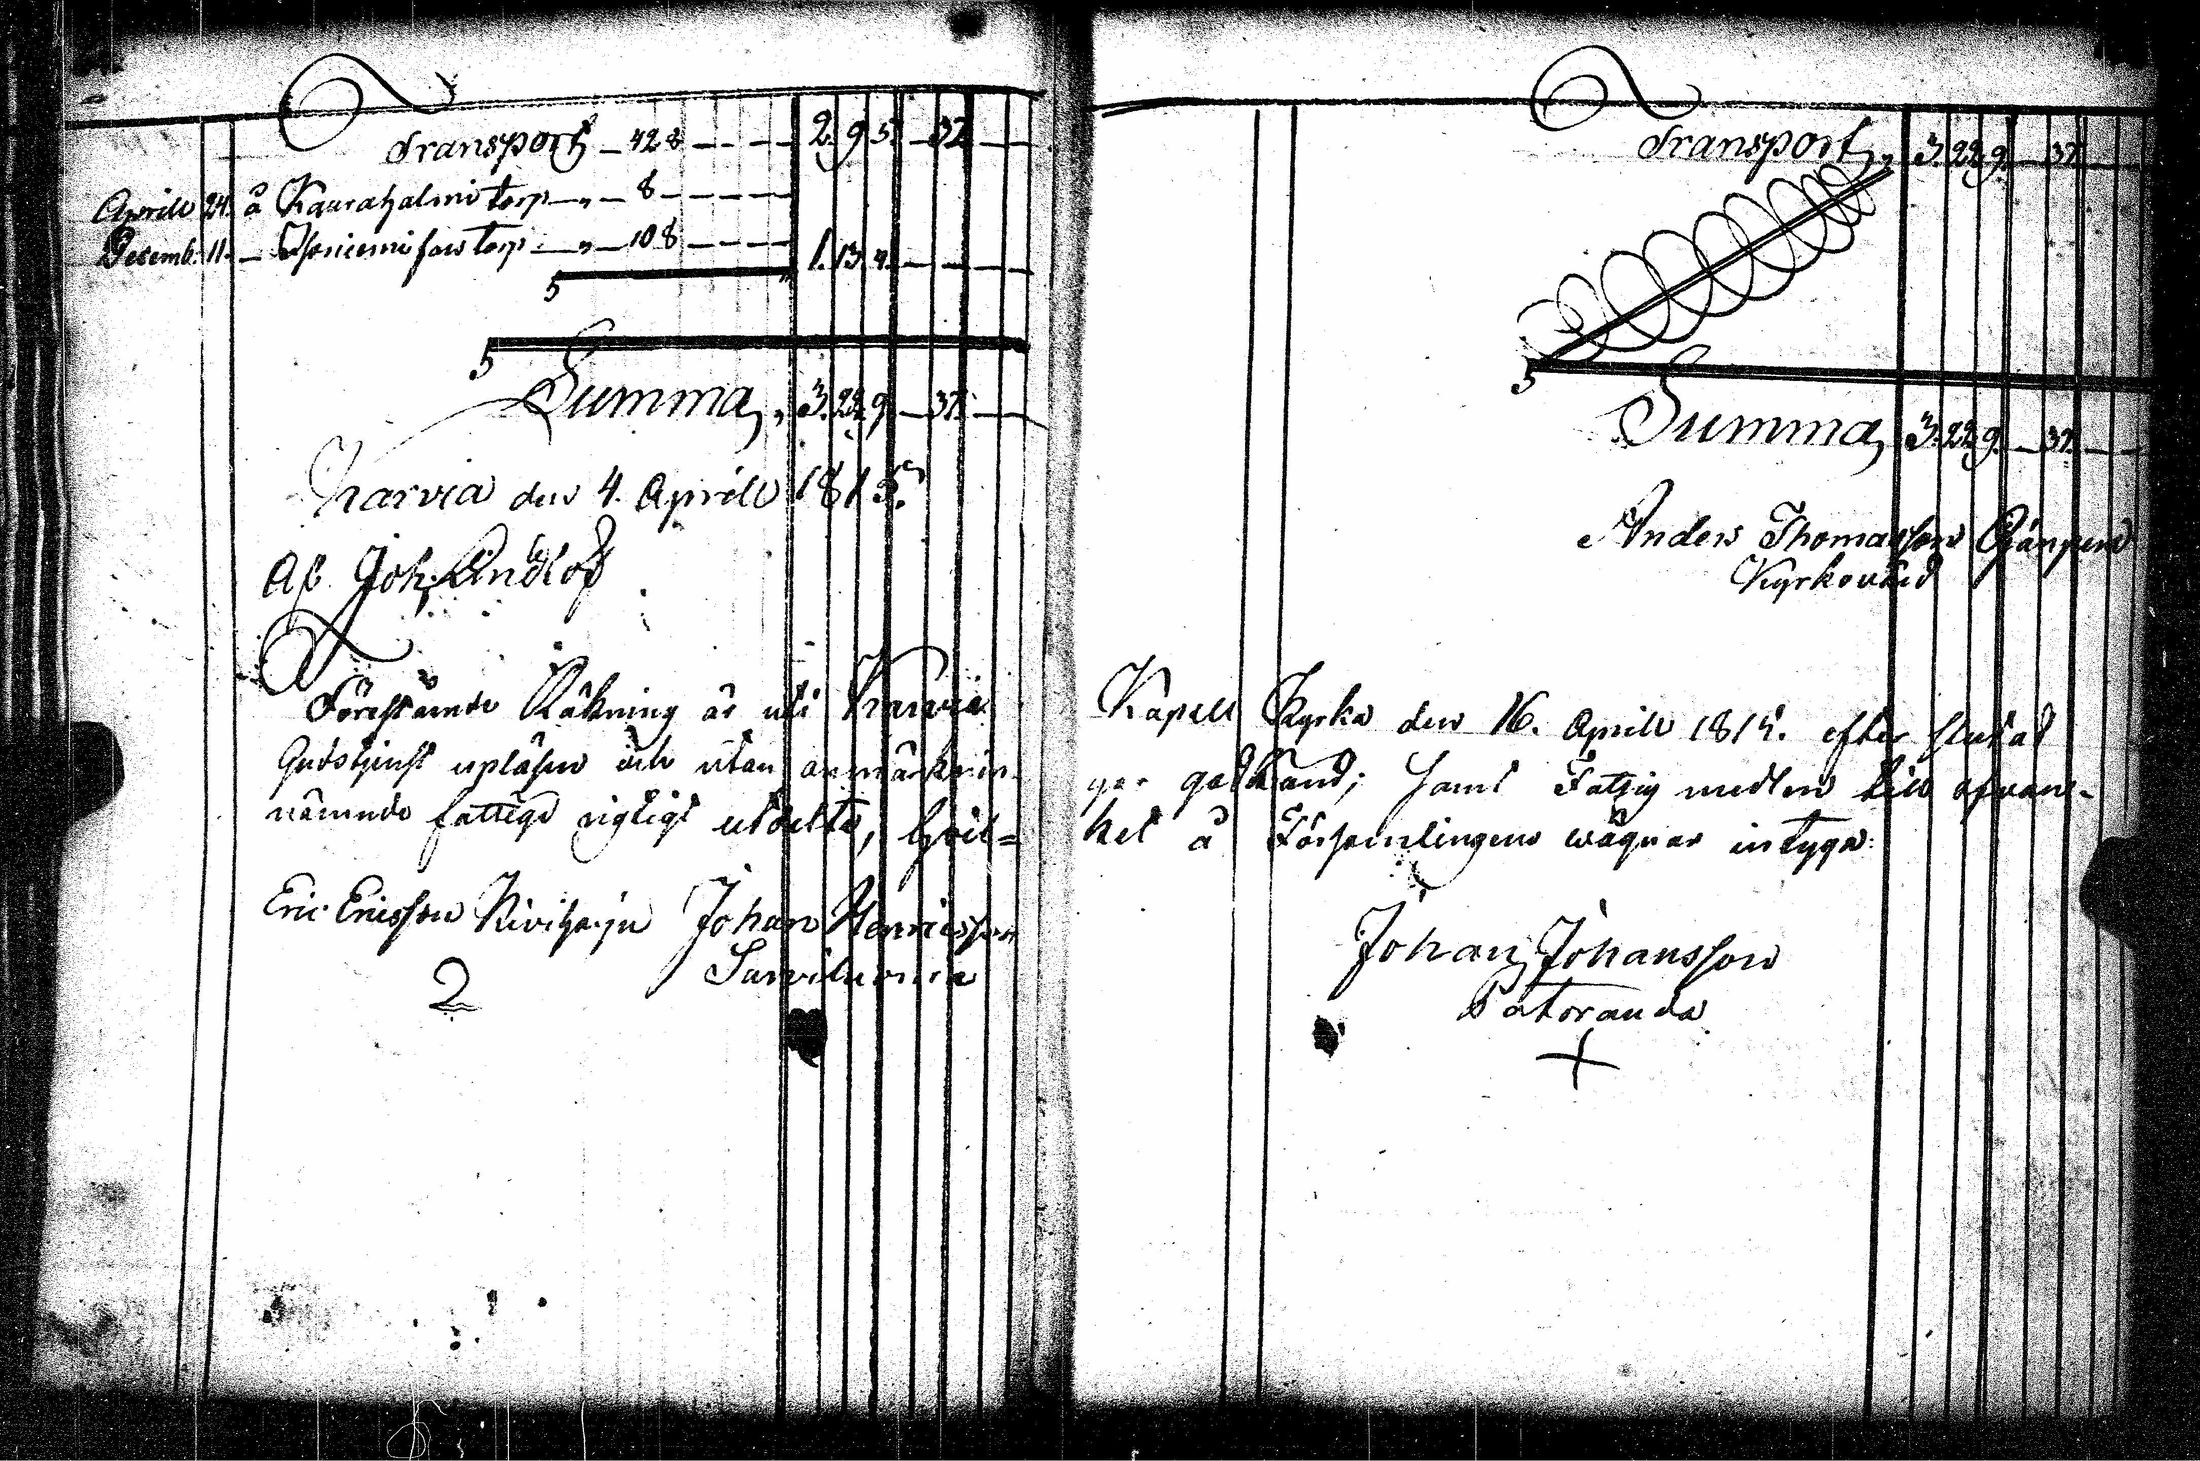 Transport, — 428 — — — 2. 9. 5. — 32. —
Aprill 24. å Kaurahalmi torp — „ — 8 — — —
Decemb. 11. — torp — „ — 108 — — — 1. 13. 4. — — —
Summa, 3. 22. 9. — 32. —
Karvia den 4. Aprill 1815.
Joh.
Förestående Räkning är uti Karvia
Gudstjenst upläsen och utan anmärknin-
nämnde fattige rigtigt utdelte, hvil=
Eric Ericsson Johan Henricsson
2
Transport, 3. 22. 9. — 32. —
Summa, 3. 22. 9. — 32. —
Anders Thomasson
Kyrkovärd
Kapell Kyrka den 16. Aprill 1815. efter slutad
gar godkänd; samt Fattig medlen till ofvan-
ket å Församlingens wägnar intyga:
Johan Johansson